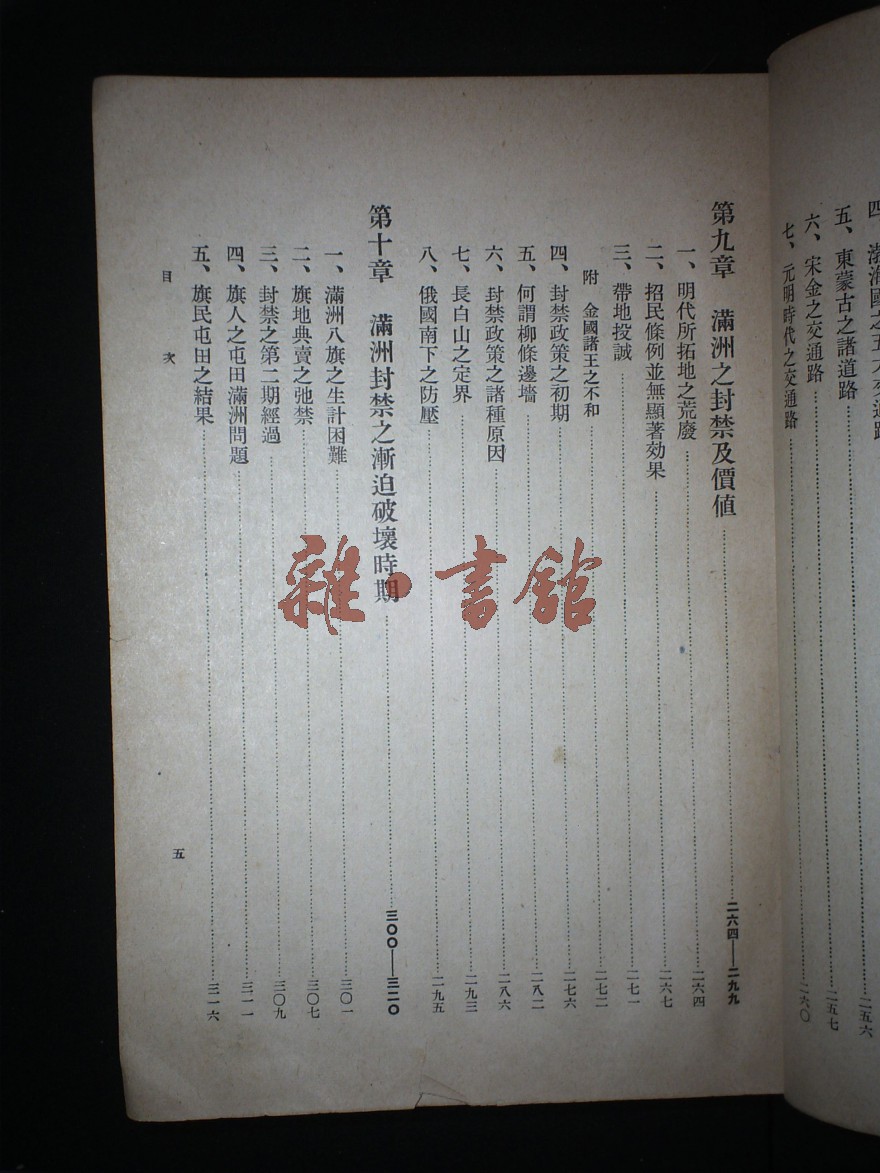 四、渤海國之五大交通路……二五六
五、東蒙古之諸道路……二五七
六、宋金之交通路
七、元明時代之交通路……二六〇
第九章　滿洲之封禁及價值……二六四——二九九
一、明代所拓地之荒廢……二六四
二、招民條例並無顯著効果……二六七
三、帶地投誠……二七一
附　金國諸王之不和……二七二
四、封禁政策之初期……二七六
五、何謂柳條邊墻……二八二
六、封禁政策之諸種原因……二八六
七、長白山之定界……二九三
八、俄國南下之防壓……二九五
第十章　滿洲封禁之漸迫破壞時期……三〇〇——三二〇
一、滿洲八旗之生計困難……三〇一
二、旗地典賣之弛禁……三〇七
三、封禁之第二期經過……三〇九
四、旗人之屯田滿洲問題……三一一
五、旗民屯田之結果……三一六
目　次
五
雜·書館